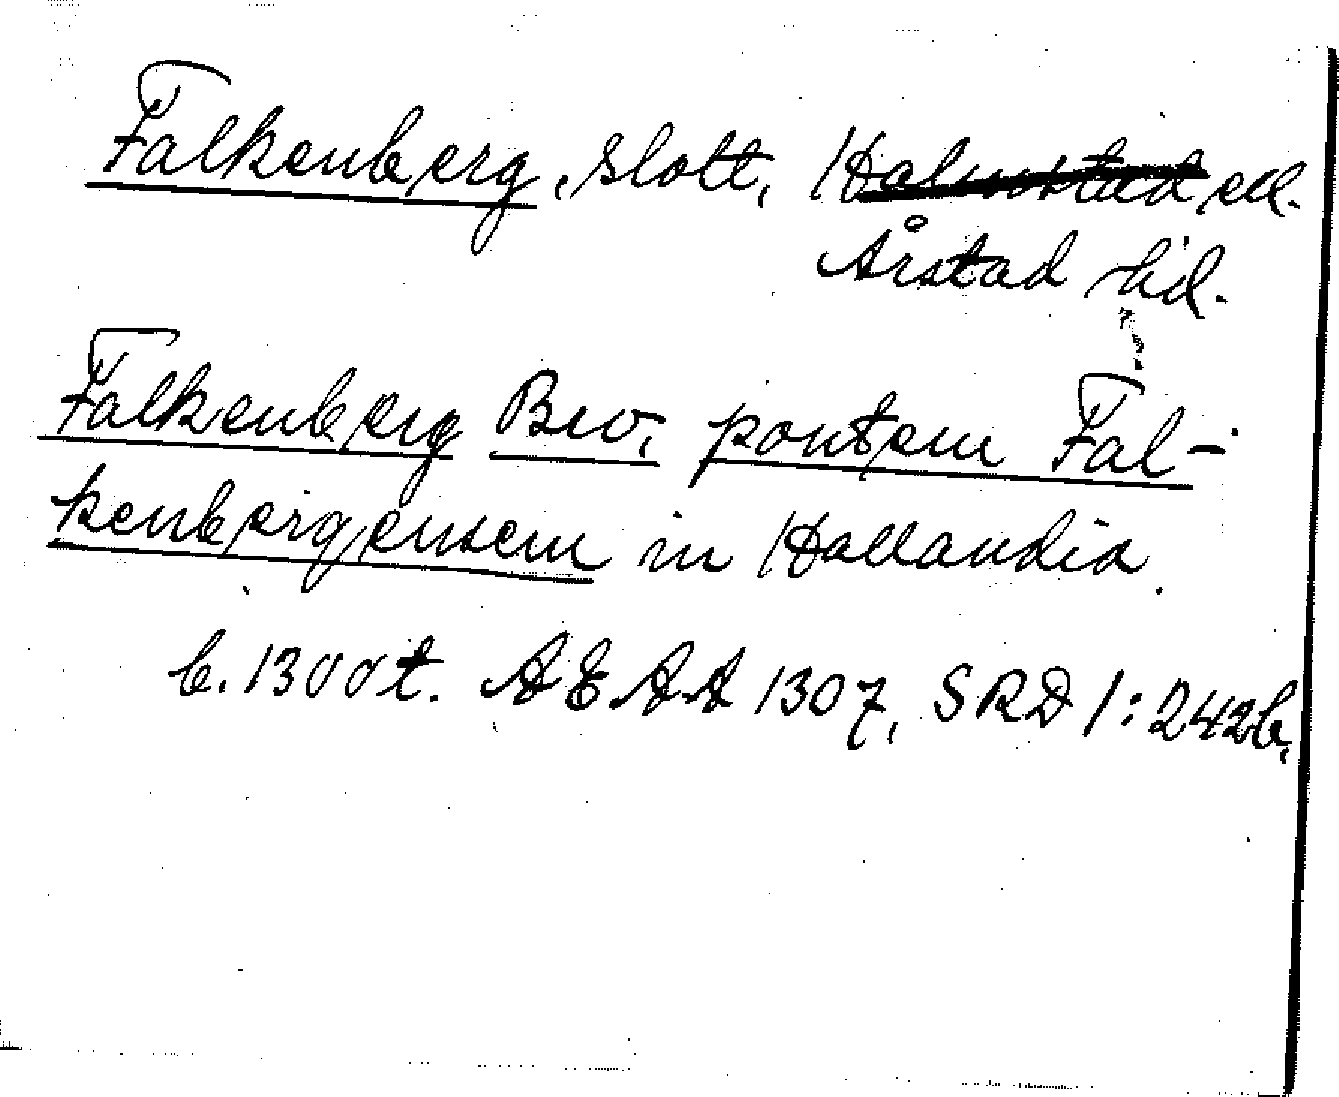 Falkenberg, slott, Halmstad ell.
Årstad hd.
Falkenberg Bro, pontem Fal-
kenbergensem in Hallandia.
b. 1300t. AEAA 1307, SRD 1:242b.